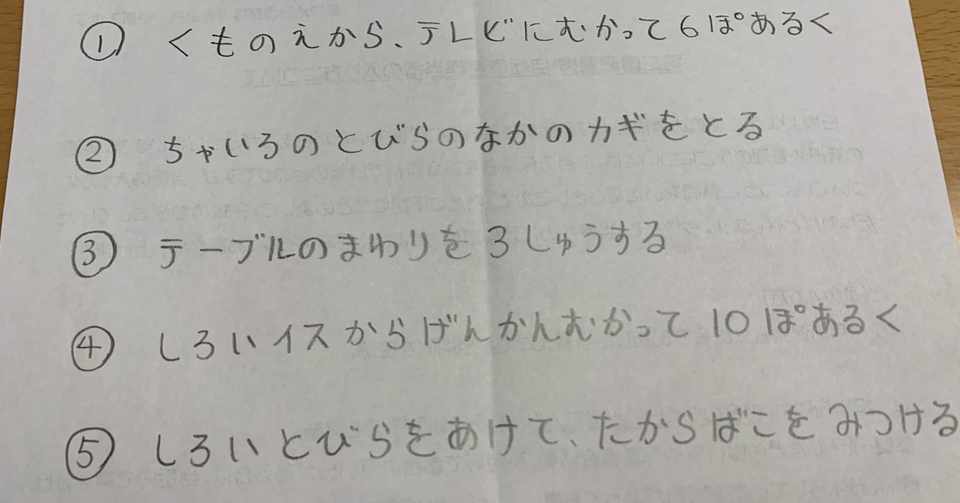 ① くものえから、テレビにむかって6ぽあるく
② ちゃいろのとびらのなかのカギをとる
③ テーブルのまわりを3しゅうする
④ しろいイスからげんかんむかって10ぽあるく
⑤ しろいとびらをあけて、たからばこをみつける